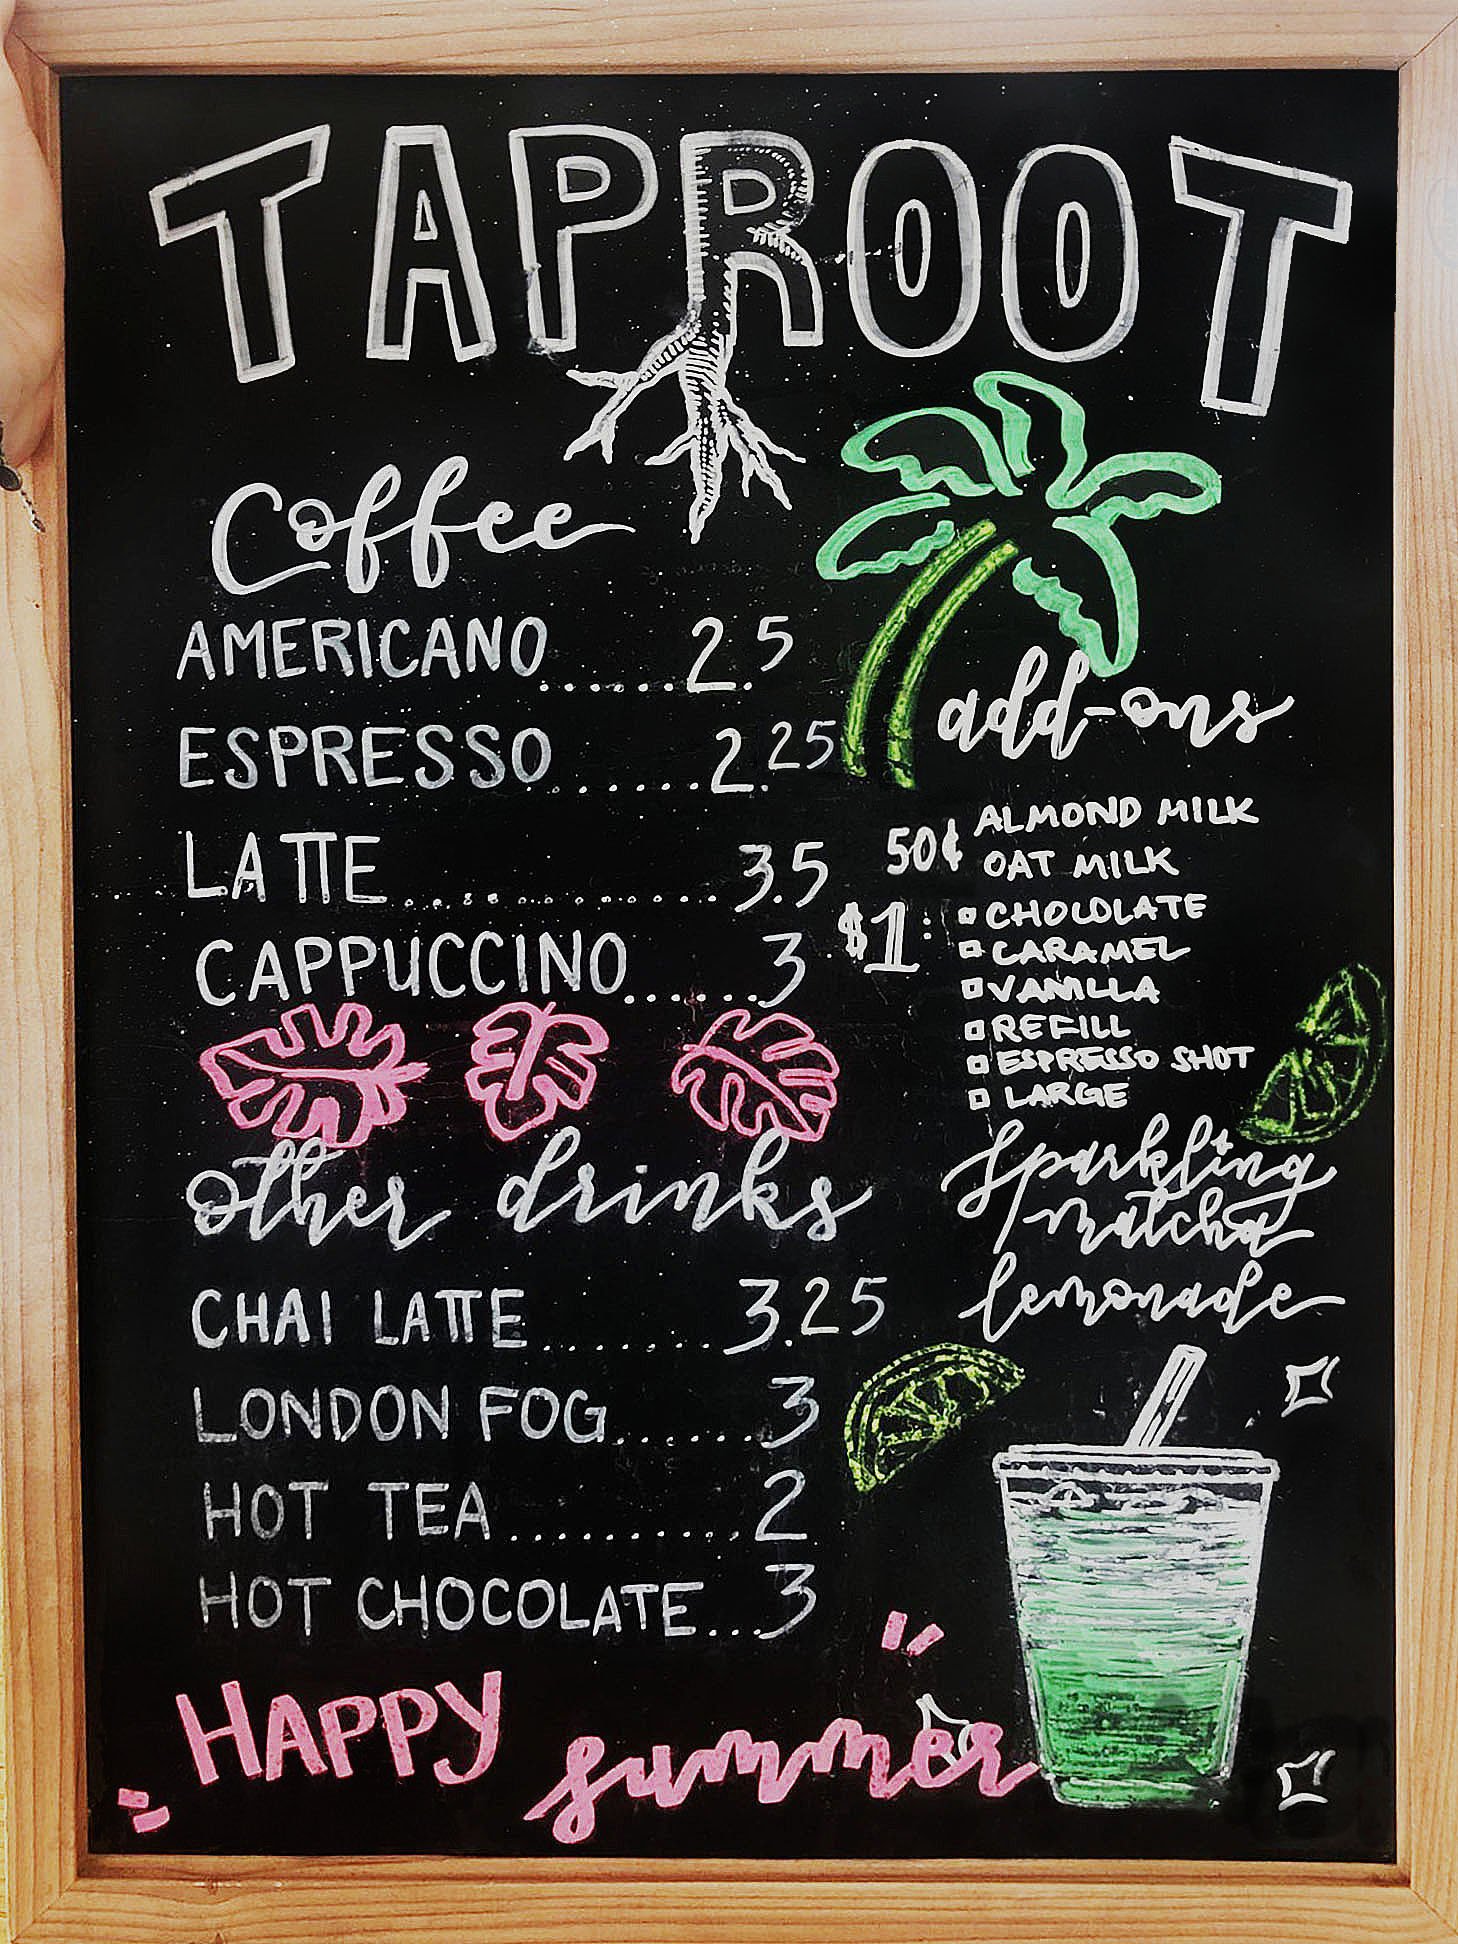 TAPROOT
Coffee
AMERICANO......2.5
ESPRESSO.......2.25
LATTE..............3.5
CAPPUCCINO......3
add-ons
50¢ ALMOND MILK
OAT MILK
$1: CHOCOLATE
CARAMEL
VANILLA
REFILL
ESPRESSO SHOT
LARGE
other drinks
CHAI LATTE........3.25
LONDON FOG......3
HOT TEA...........2
HOT CHOCOLATE...3
sparkling
matcha
lemonade
HAPPY summer